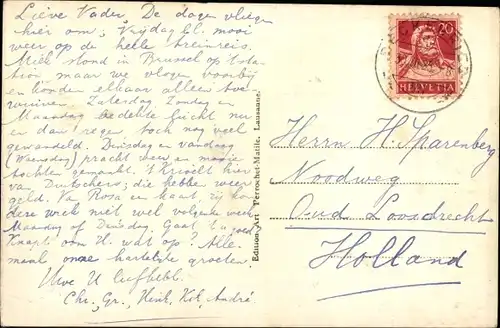 Lieve Vader, De dagen vliegen
hier om; Vrijdag j.l. mooi
weer op de hele treinreis.
Miel stond in Brussel op 't sta
tion maar we vlogen voorbij
en konden elkaar alleen toe
wuiven. Zaterdag, Zondag en
Maandag bedekte lucht nu
en dan regen, toch nog veel
gewandeld. Dinsdag en vandaag
(Woensdag) pracht weer en mooie
tochten gemaakt. 't Krioelt hier
van Duitschers; die hebben weer
geld. Van Rosa en kaart, zij kon
deze week niet wel volgende week
Maandag of Dinsdag. Gaat 't goed
Knapt om U. wat op? Alle-
maal onze hartelijke groeten.
Uwe U liefhebb.
Chr., Gr., Henk, Kit, André.
Edition Art Perrochet-Matile, Lausanne.
20
HELVETIA
Herrn H. Sparenberg
Noodweg
Oud Loosdrecht
Holland